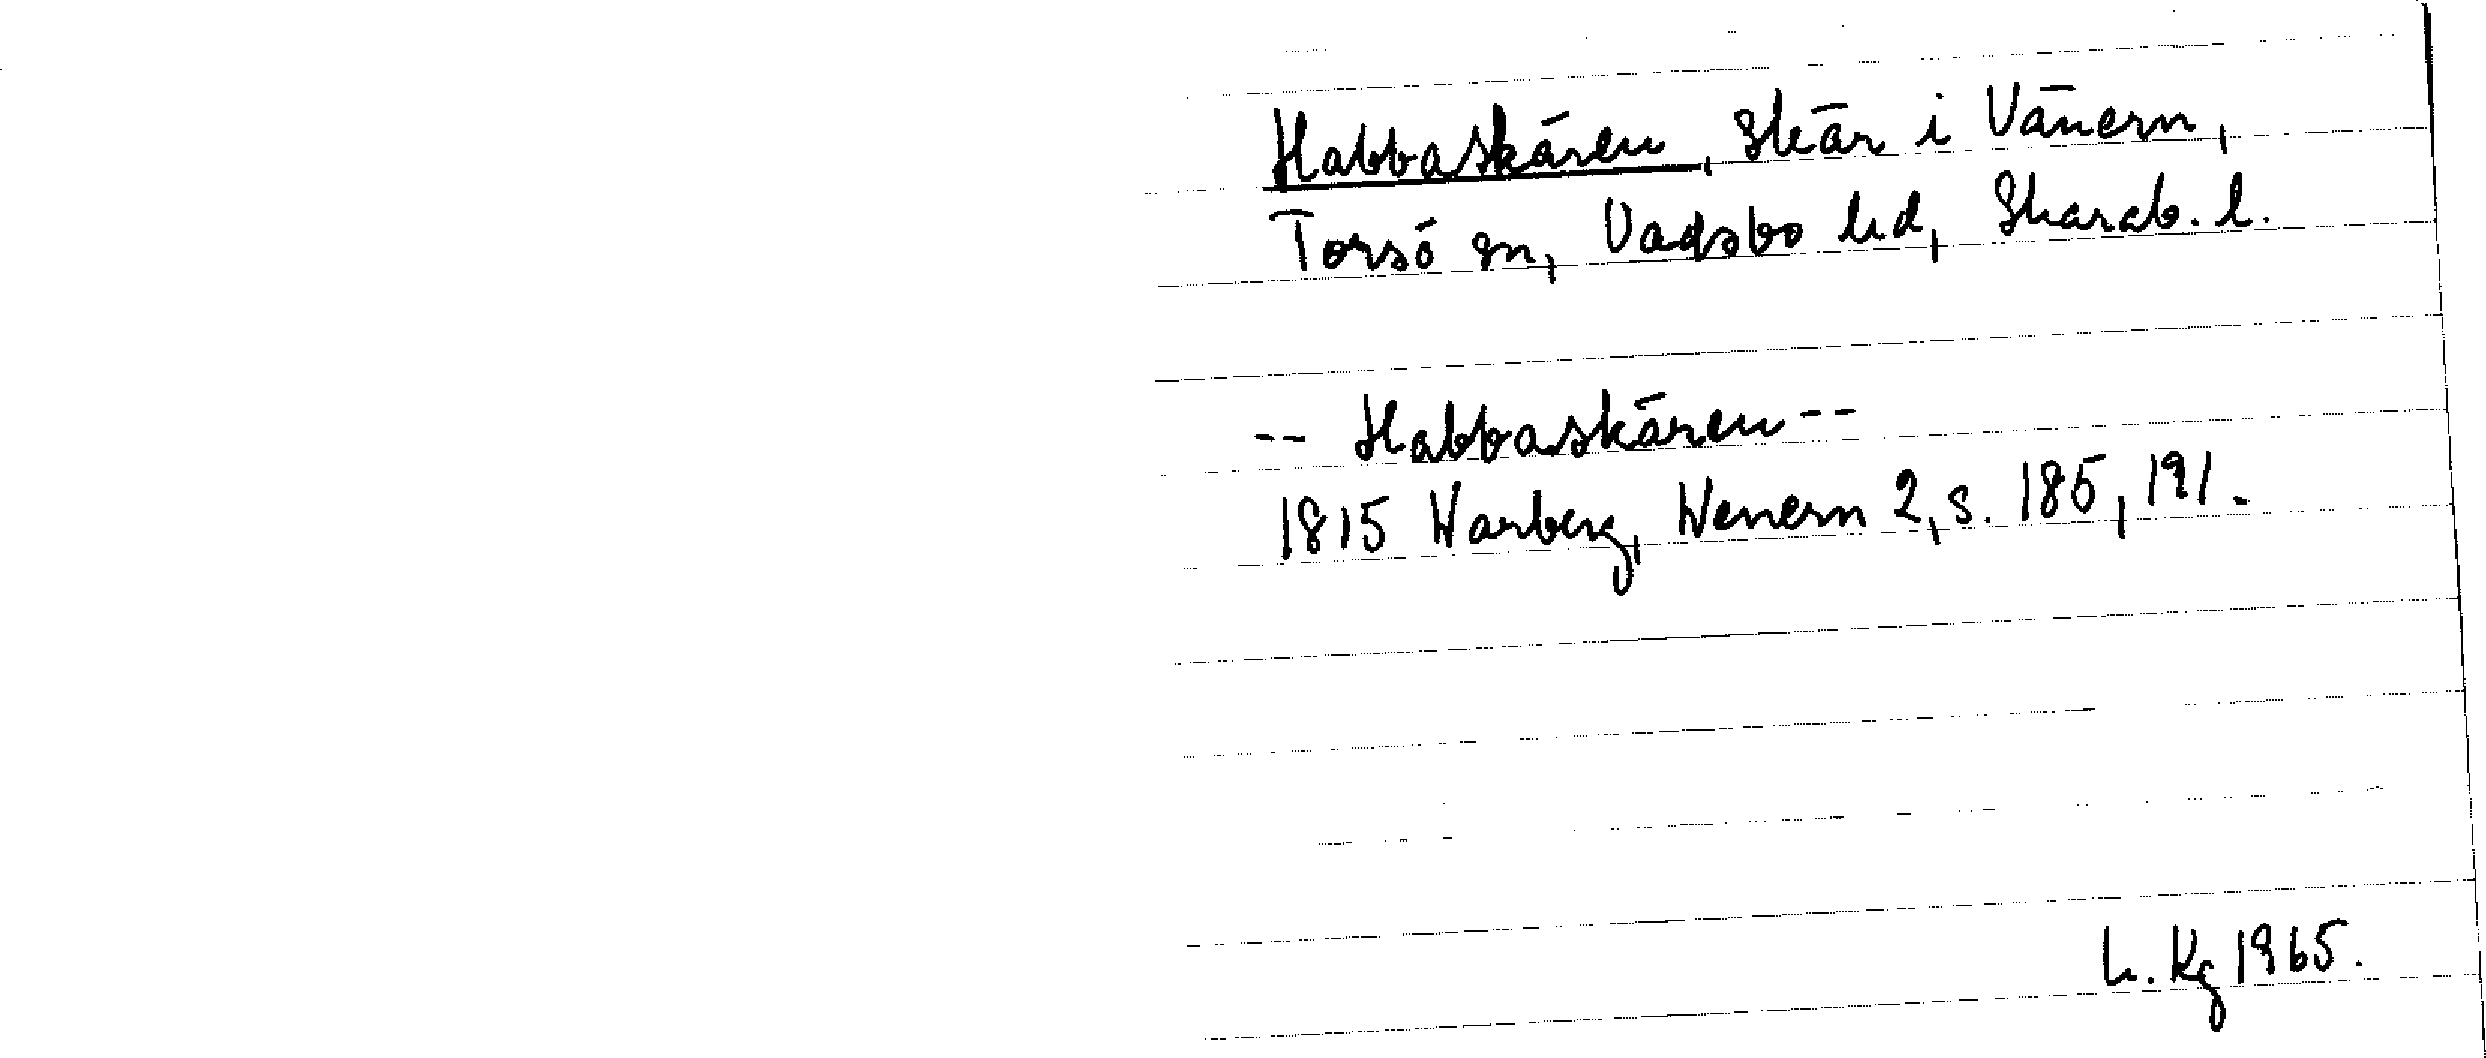 Habbaskären, skär i Vänern,
Torsö sn, Vadsbo hd, Skarab. l.
-- Habbaskären --
1815 Warberg, Wenern 2, s. 185, 191.
L. Kg 1965.